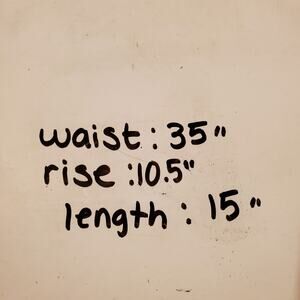 waist : 35"
rise :10.5"
length : 15"